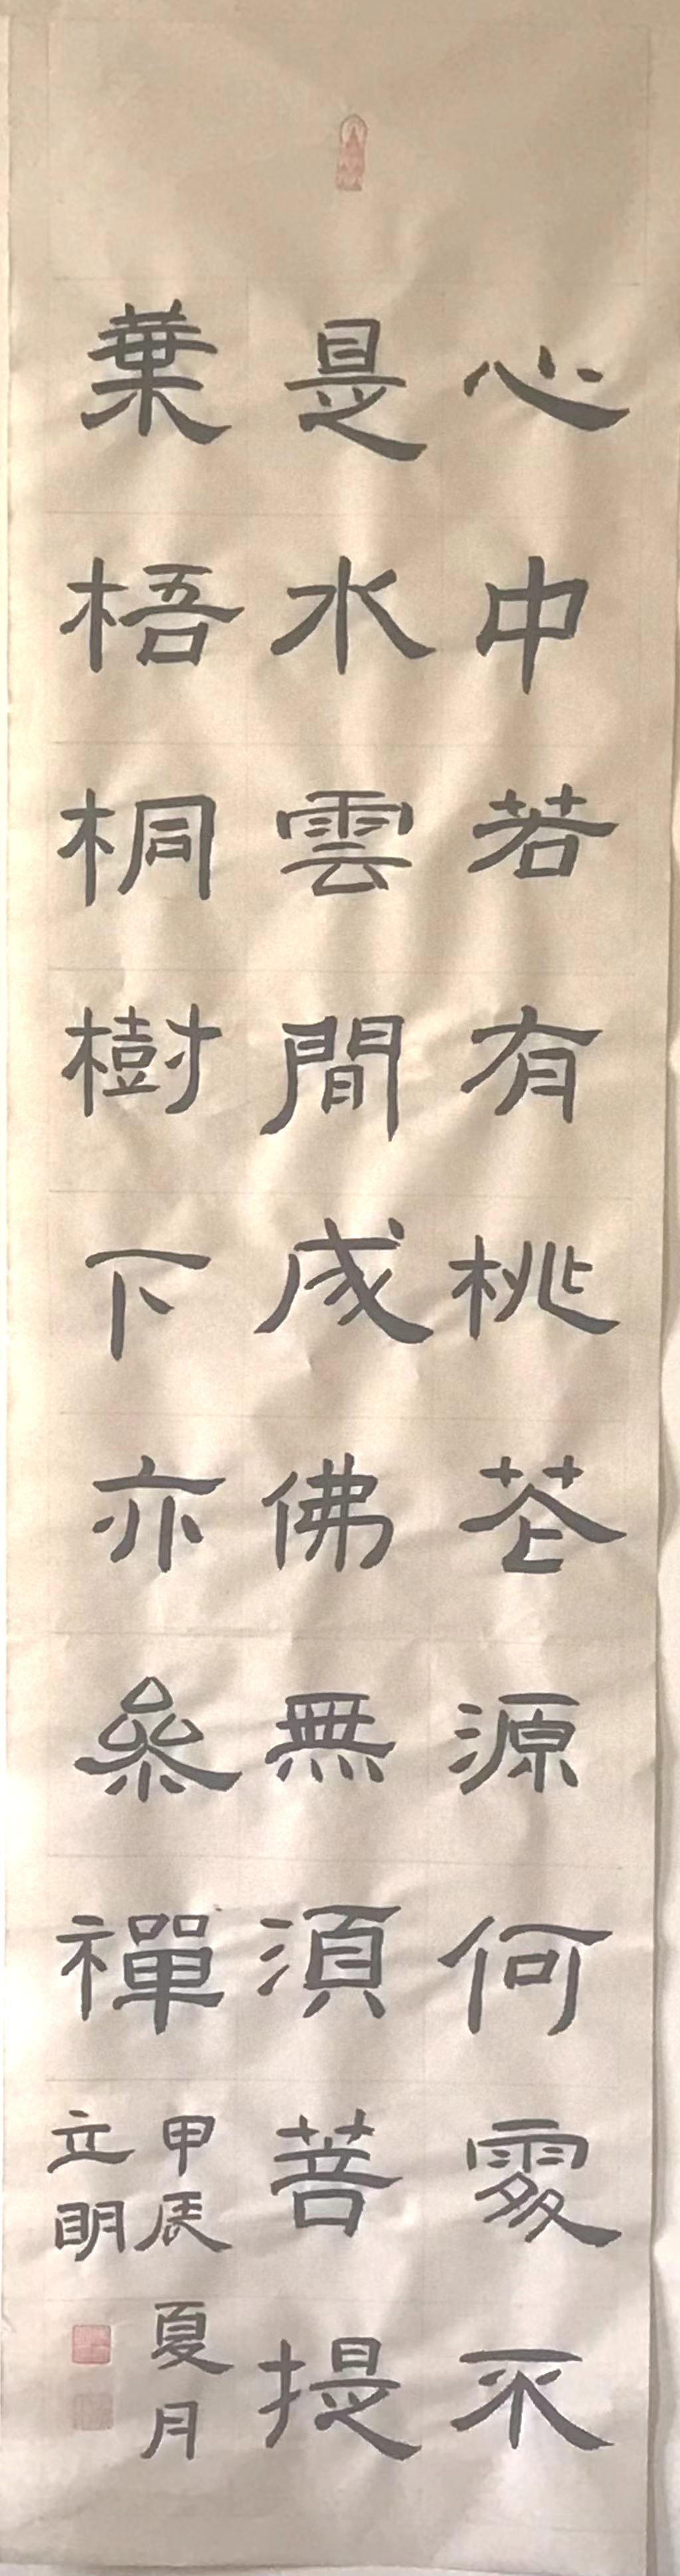 心中若有桃花源何處不
是水雲間成佛無須菩提
葉梧桐樹下亦參禪
甲辰夏月
立明